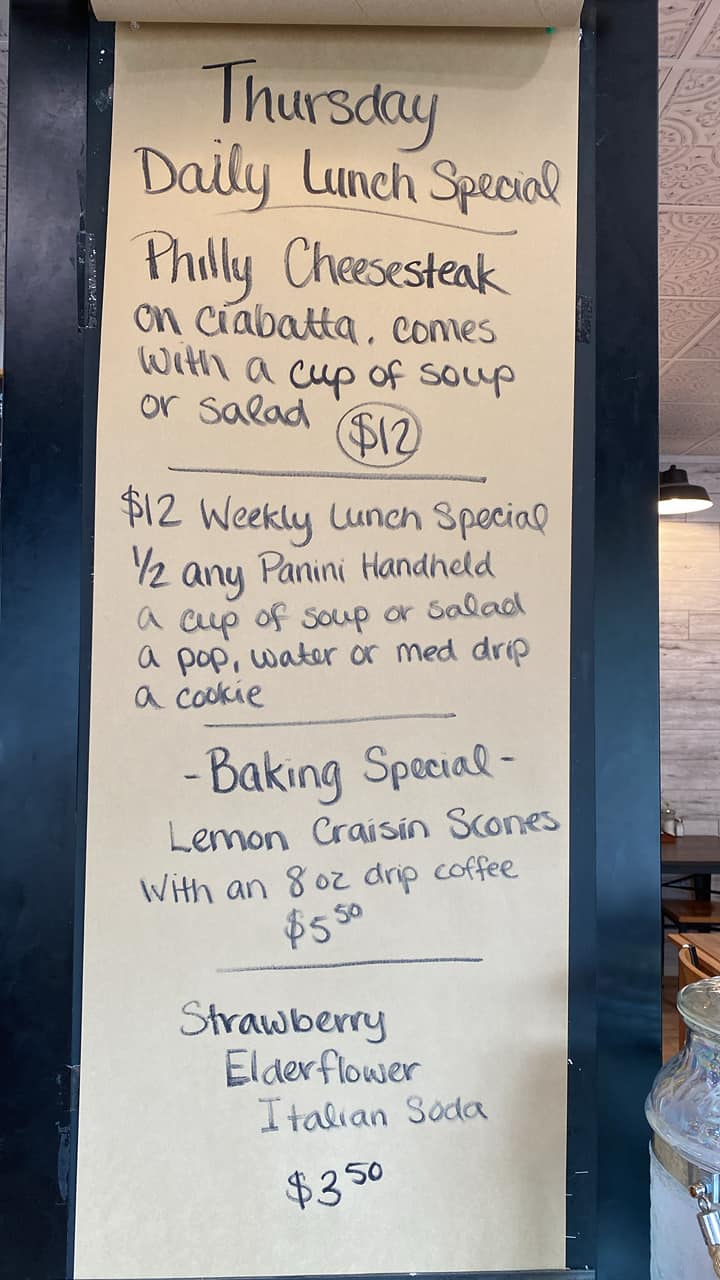 Thursday
Daily Lunch Special
Philly Cheesesteak
on ciabatta. comes
with a cup of soup
or salad $12
$12 Weekly Lunch Special
1/2 any Panini Handheld
a cup of soup or salad
a pop, water or med drip
a cookie
- Baking Special -
Lemon Craisin Scones
With an 8 oz drip coffee
$5.50
Strawberry
Elderflower
Italian Soda
$3.50